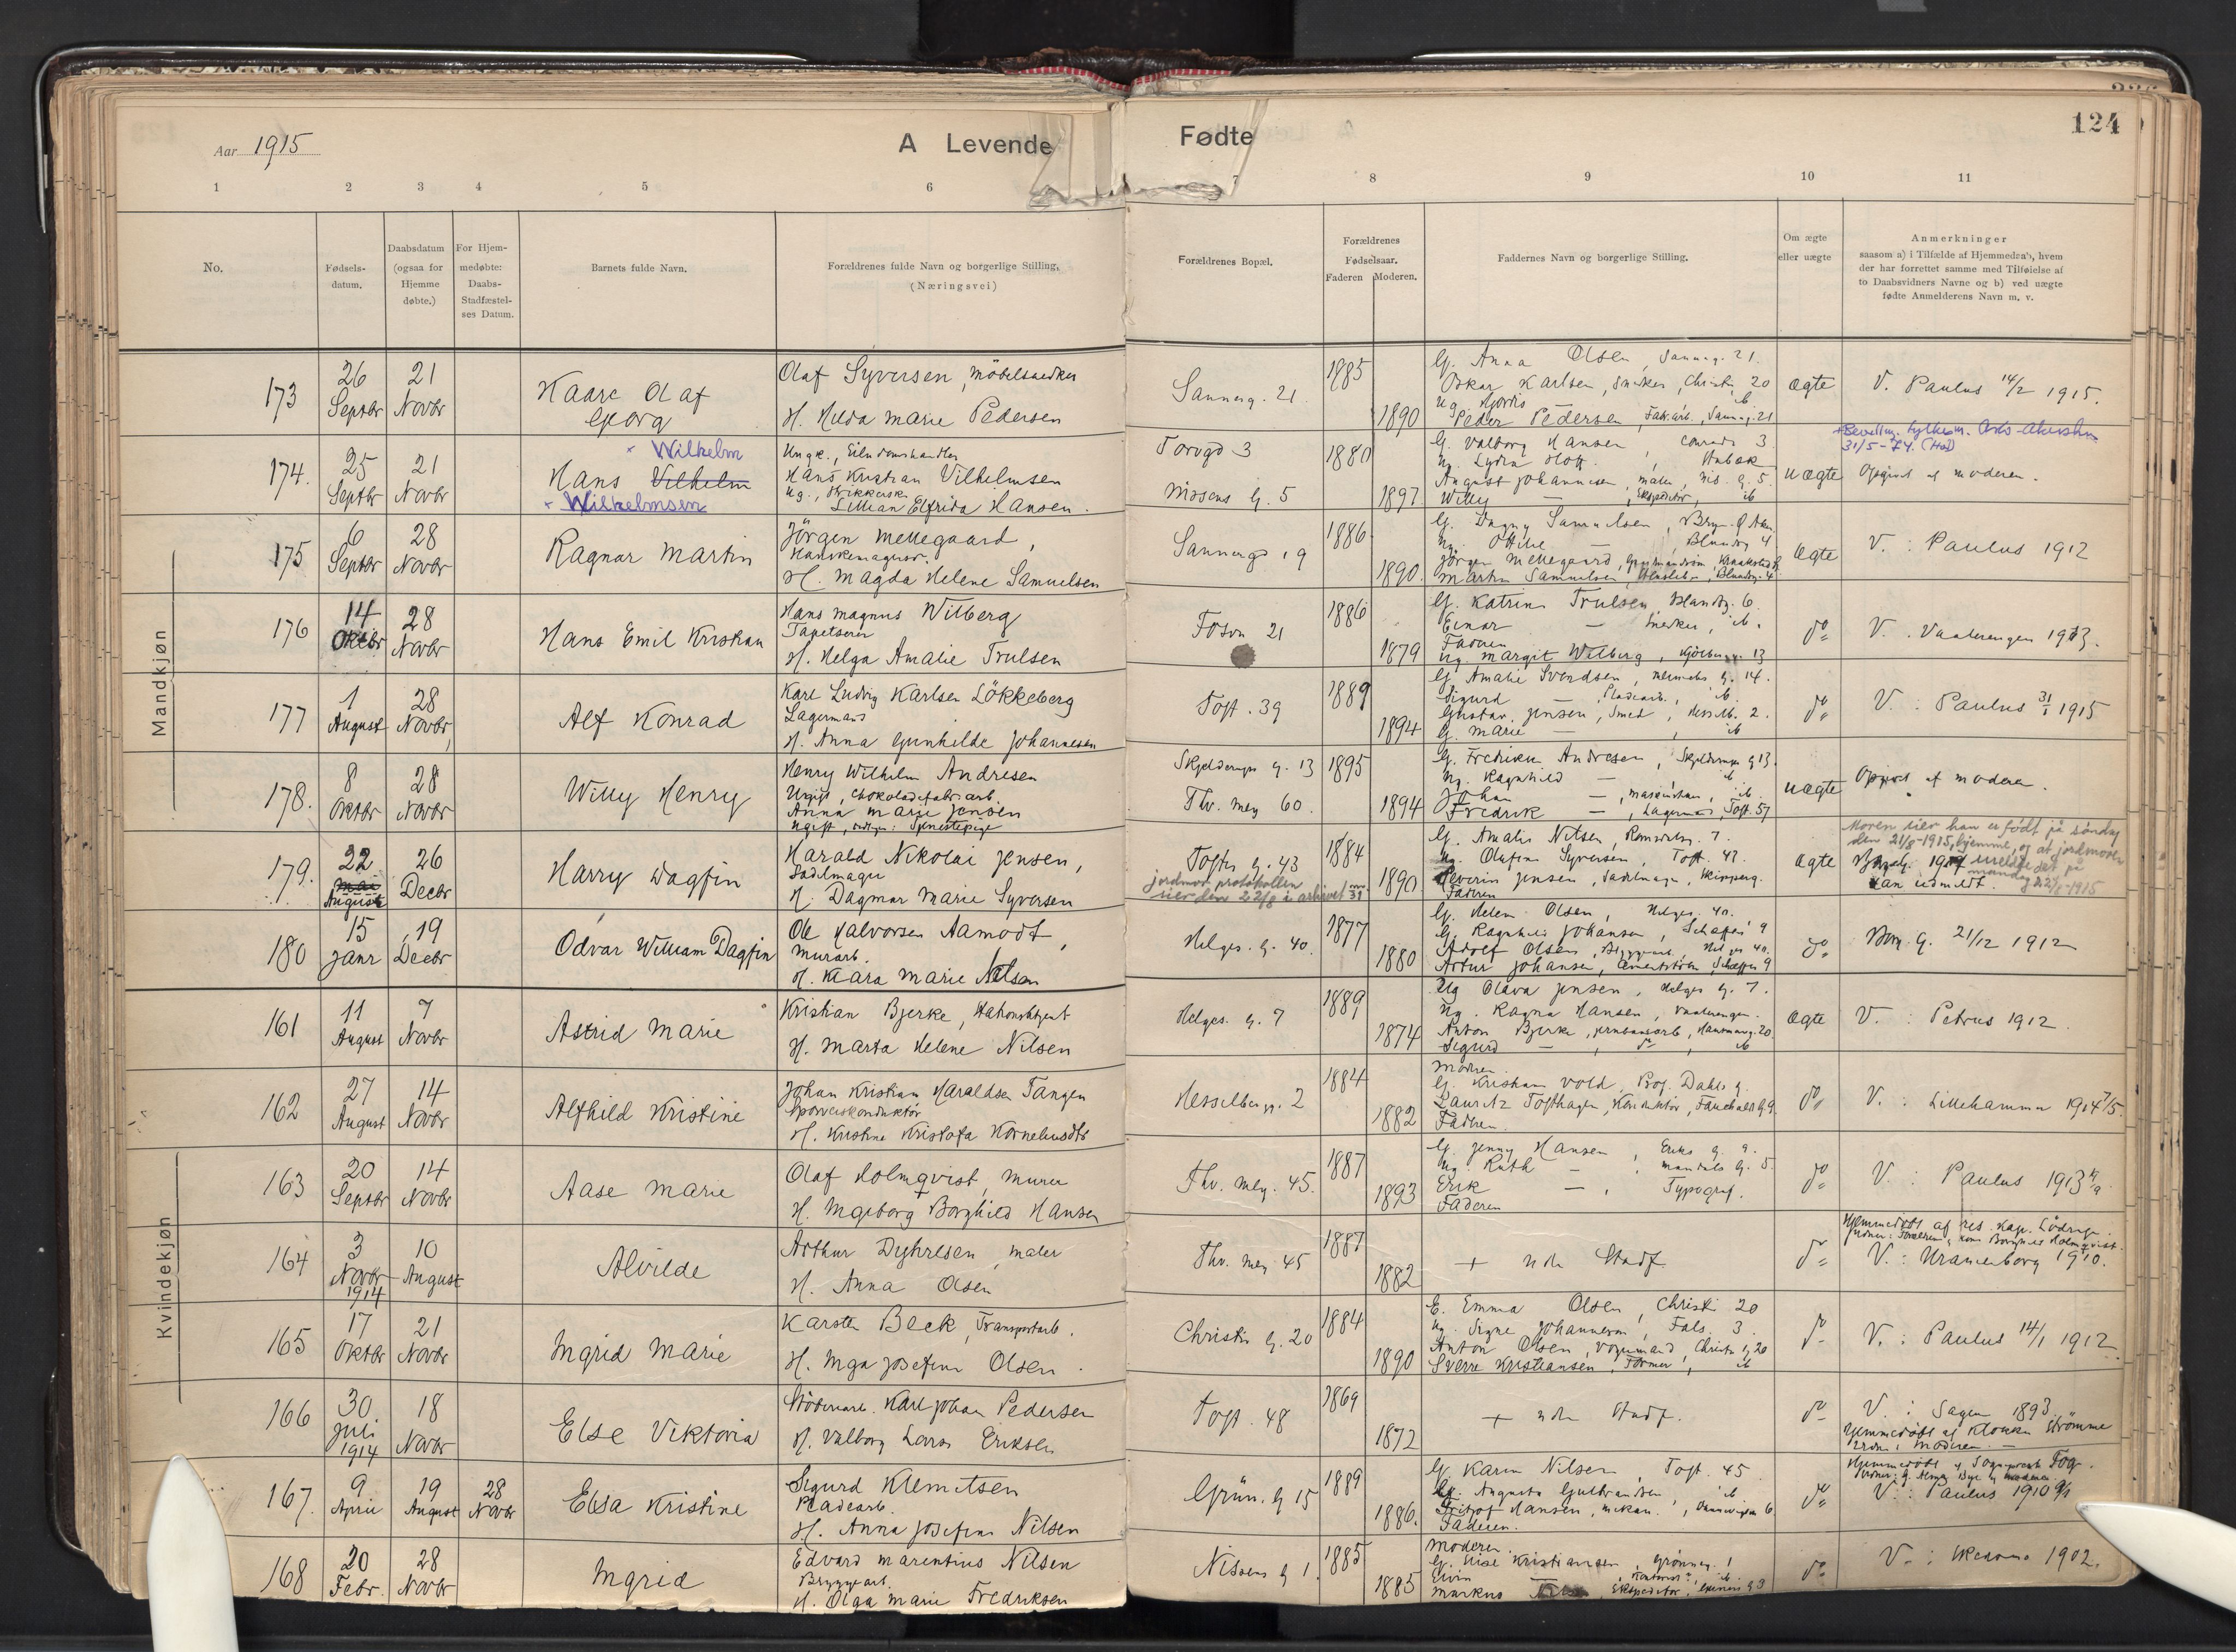 124
Aar 1915
A Levende Fødte
1 2 3 4 5 6 7 8 9 10 11
No.
Fødsels-
datum.
Daabsdatum
(ogsaa for
Hjemme
døbte.)
For Hjem-
medøbte:
Daabs-
Stadfæstel-
ses Datum.
Barnets fulde Navn.
Forældrenes fulde Navn og borgerlige Stilling,
(Næringsvei)
Forældrenes Bopæl.
Forældrenes
Fødselsaar.
Faderen Moderen.
Faddernes Navn og borgerlige Stilling.
Om ægte
eller uægte
Anmerkninger
saasom a) i Tilfælde af Hjemmedaab, hvem
der har forrettet samme med Tilføielse af
to Daabsvidners Navne og b) ved uægte
fødte Anmelderens Navn m. v.
Mandkjøn
173
26
Septbr
21
Novbr
Kaare Olaf
Georg
Olaf Syversen, Möbelsnedker
H. Hilda Marie Pedersen
Sannerg. 21
1885
1890
G. Anna Olsen, Sannerg. 21.
Oskar Karlsen, Snedker, Christi 20
Ug. Hjördis
Peder Pedersen, Fabr.arb., Sannerg. 21
ægte
V. Paulus 14/2 1915.
174.
25
Septbr
21
Novbr
× Wilhelm
Hans Vilhelm
× Wilhelmsen
Ungk., Eiendomshandler
Hans Kristian Vilhelmsen
Ug., Strikkerske
Lillian Elfrida Hansen.
Torvgd 3
Nissens g. 5
1880
1897
G. Valborg Hansen, Conrads 3
August Johannesen, maler, Nis. g. 5.
Willy — , Ekspeditör, ib
uægte
31/5-74. (Hod)
Opgivet af moderen.
175
6
Septbr
28
Novbr
Ragnar Martin
Jörgen Mellegaard,
Hanskemager.
H. Magda Helene Samuelsen
Sannergd 19
1886
1890.
G. Dagny Samuelsen
Ug. Ottilie —
Jörgen Mellegaard
Martin Samuelsen
ægte
V.: Paulus 1912
176
14
Oktbr
28
Novbr
Hans Emil Kristian
Hans Magnus Wilberg
Tapetserer
H. Helga Amalie Trulsen
Fossv 21
1886
1879
G. Katrine Trulsen
Einar — Snedker, ib.
Faderen
Ug. Margit Wilberg
do
V. Vaalerengen 1913.
177
1
August
28
Novbr
Alf Konrad
Karl Ludvig Karlsen Lökkeberg
Lagermand
H. Anna Gunhilde Johannesen
Toft. 39
1889
1894
G. Amalie Svendsen
Sigurd — Pladearb., ib.
Gustav Jensen, Smed, Hesselb. 2.
G. Marie — , ib
do
V.: Paulus 31/1 1915
178.
8
Oktbr
28
Novbr
Willy Henry
Henry Wilhelm Andresen
Ugift, Chokoladefabr.arb.
Anna Marie Jensen
Ugift, Tjenestepige
Skjelderups g. 13
Thv. Mey. 60.
1895
1894
G. Fredrikke Andresen
Ug. Ragnhild — ib
Johan — , maskinhan., ib.
Fredrik — , Lagermand, Toft. 57
uægte
Opgivet af moderen.
179.
22
Mai
August
26
Decbr
Harry Dagfin
Harald Nikolai Jensen,
Sadelmager
H. Dagmar Marie Syversen
Toftes g. 43
jordmor protokollen
sier den 22/8 i arkivet
1884
1890
G. Amalie Nilsen
Ug. Olufine Syversen, Toft. 43.
Severin Jensen, Sadelmager
Faderen
ægte
Moren sier han er født på søndag
den 21/8-1915, hjemme, og at jordmoren
meldte det på
mandag 22/8-1915
180
15
Janr
19
Decbr
Odvar William Dagfin
Ole Halvorsen Aamodt,
Murarb.
H. Klara Marie Nilsen
Helges. g. 40.
1877
1880
G. Helene Olsen, Helges. 40.
G. Ragnhild Johansen, Schaffes 9
Adolf Olsen, Bryggearb., Helges 40.
Artur Johansen
do
Borg. g. 21/12 1912
Kvindekjøn
161
11
August
7
Novbr
Astrid Marie
Kristian Bjerke, Stationsbetjent
H. Marta Helene Nilsen
Helges. g. 7
1889
1874
Ug Olava Jensen, Helges g. 7.
Ug. Ragna Hansen, Vaalerengen.
Anton Bjerke, jernbanearb.
Sigurd — , do, ib
ægte
V.: Petrus 1912
162
27
August
14
Novbr
Alfhild Kristine
Johan Kristian Haraldsen Tangen
Sporveiskonduktör
H. Kristine Kristofa Korneliusdtr
Hesselbergs. 2
1884
1882
Moderen
G. Kristiane Vold, Prof. Dahls g.
Lauritz Tofthagen, Konduktör
Faderen.
do
V.: Lillehammer 1904 7/5.
163
20
Septbr
14
Novbr
Aase Marie
Olaf Holmqvist, murer
H. Ingeborg Borghild Hansen
Thv. Mey. 45.
1887
1893
G. Jenny Hansen, Eriks g. 9.
Ug. Ruth —
Erik — , Typograf.
Faderen
do
V.: Paulus 1913
164
3
Novbr
1914
10
August
Alvilde
Arthur Dyhresen, maler
H. Anna Olsen
Thv. Mey 45
1887
1882
+ uden Stadf.
do
Hjemmedöbt af res. kap. Lödrup
V.: Uranienborg 1910.
165
17
Oktbr
21
Novbr
Ingrid Marie
Karsten Beck, Transportarb.
H. Inga Josefine Olsen.
Christies g. 20
1884
1890
E. Emma Olsen, Christi 20
Ug. Signe Johannesen, Fals. 3.
Anton Olsen, Vognmand, Christi g 20
Sverre Kristiansen, Former, ib
do
V.: Paulus 14/1 1912
166
30
Juli
1914
18
Novbr
Else Viktoria
Støberiarb. Karl Johan Pedersen
H. Valborg Lovise Eriksen
Toft. 48
1869
1872
+ uden Stadf.
do
V.: Sagene 1893.
Hjemmedöbt af Klokker Strömme
167.
9
April
19
August
28
Novbr
Elsa Kristine
Sigurd Klemetsen
Pladearb.
H. Anna Josefine Nilsen
Grün. g 15
1889
1886.
G. Karen Nilsen, Toft. 45
G. Augusta Gulbrandsen, ib
Fritjof Hansen, mekan.
Faderen.
do
V.: Paulus 1910
168
20
Febr.
28
Novbr
Ingrid
Edvard Marentius Nilsen
Bryggearb.
H. Olga Marie Fredriksen
Nissens g 1.
1885
1885
Moderen.
G. Kristiansen, Grönneg. 1
Markus
do
V.: 1902.